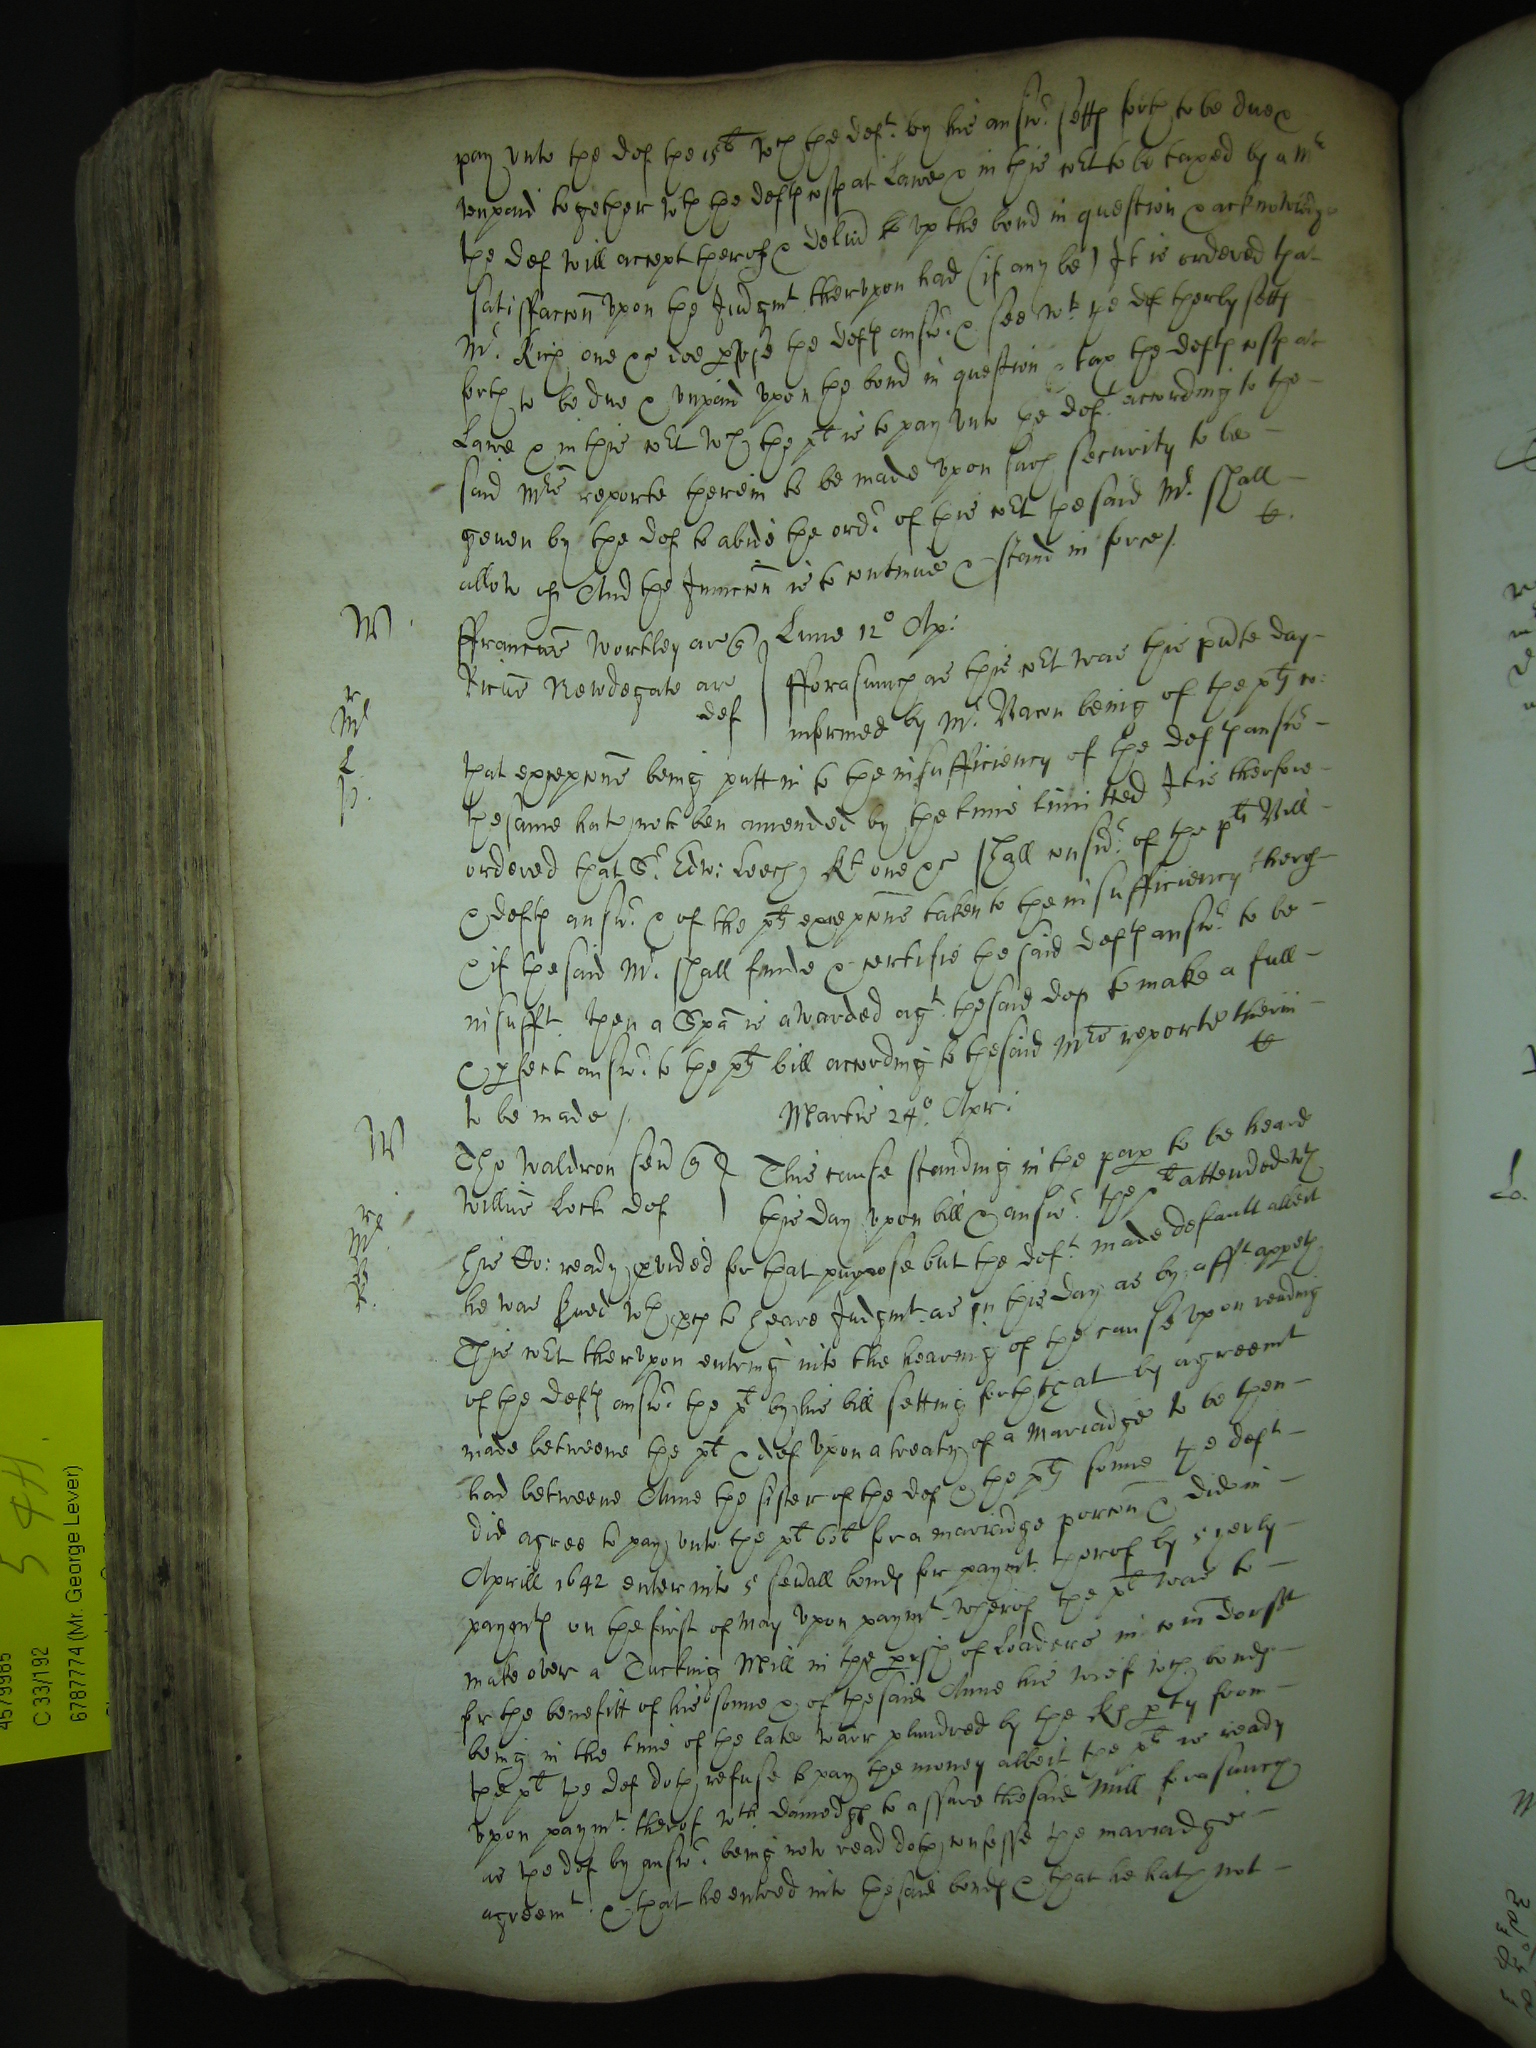 pay vnto the def the 15l wch the deft. by his answr. setts forth to be due &
vnpaid together wth the defts costs at Lawe & in this cort to be taxed by a Mr
the def will accept therof & deliũ vp the bond in question & acknowledge
satisfaccon vpon the Judgmt. thervpon had (if any be) It is ordered that
Mr. Rich one &c doe pvse the defts answr. & see wt. the def therby setts
forth to be due & vnpaid vpon the bond in question & tax the defts costs at
Lawe & in this cort wch the plt is to pay vnto the deft. according to the
said Mrs reporte therein to be made vpon such security to be
geuen by the def to abide the ordr. of this cort the said Mr. shall
allow of And the Iniuccon is to continue & stand in force /.
W.
ffranciscus Wortley ar Q
Lune 12o Ap:
Ricus Newdegate ar
def
fforasmuch as this cort was this pnte day
informed by Mr. Vacon being of the plts co:
that excepcons being putt in to the insufficiency of the defts answr
the same hath not ben amended by the time limitted It is therfore
ordered that Sr. Edw: Leech Kt one &c shall considr. of the plts Bill
& defts answr. & of the plts excepcons taken to the insufficiency therof
& if the said Mr. shall finde & certifie the said defts answr. to be
insufft. then a Spa is awarded agt. the said def to make a full
& pfect answr. to the plts bill according to the said Mrs reporte therin
to be made /.
Martis 24o. Apr:
W
Tho Waldron sen Q
Willus Lock def
This cause standing in the pap to be heard
this day vpon bill & answr. the plt attended wth
his Co: ready pvided for that purpose but the deft. made default albeit
he was srued wth pces to heare Judgmt. as on this day as by afft. appeth
This cort thervpon entring into the hearing of the cause vpon reading
of the defts answr. the plt by his bill setting forth that by agreemt
made betweene the plt & def vpon a treaty of a Mariadge to be then
had betweene Anne the sister of the def & the plts sonne the deft
did agree to pay vnto the plt 60l for a mariadge porcon & did in
Aprill 1642 enter into 5 seuall bonds for paymt. therof by 5 yerly
paymts on the first of May vpon paymt. wherof the plt was to
make over a Tucking Mill in the pish of Loaders in com Dorsett
for the benefitt of his sonne & of the said Anne his wief wch bonds
being in the time of the late warr plundred by the Ks pty from
the plt the def doth refuse to pay the money albeit the plt is ready
vpon paymt. therof wth damedges to assure the said Mill forasmuch
as the def by answr. being now read doth confesse the mariadge
agreemt. & that he entred into the said bonds & that he hath not
5 4H.
4579985
C 33/192
6787774 (Mr. George Lever)